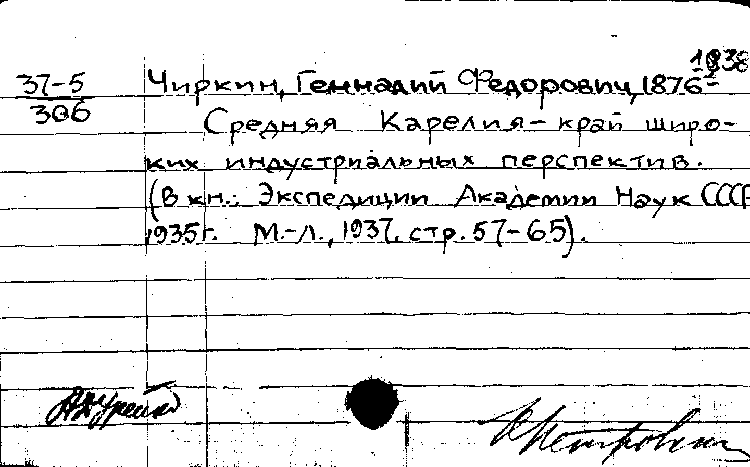 1938
37-5 Чиркин, Геннадий Федорович, 1876-
306 Средняя Карелия - край широ-
ких индустриальных перспектив.
(В кн.: Экспедиции Академии Наук СССР
1935 г. М.-Л., 1937, стр. 57-65).